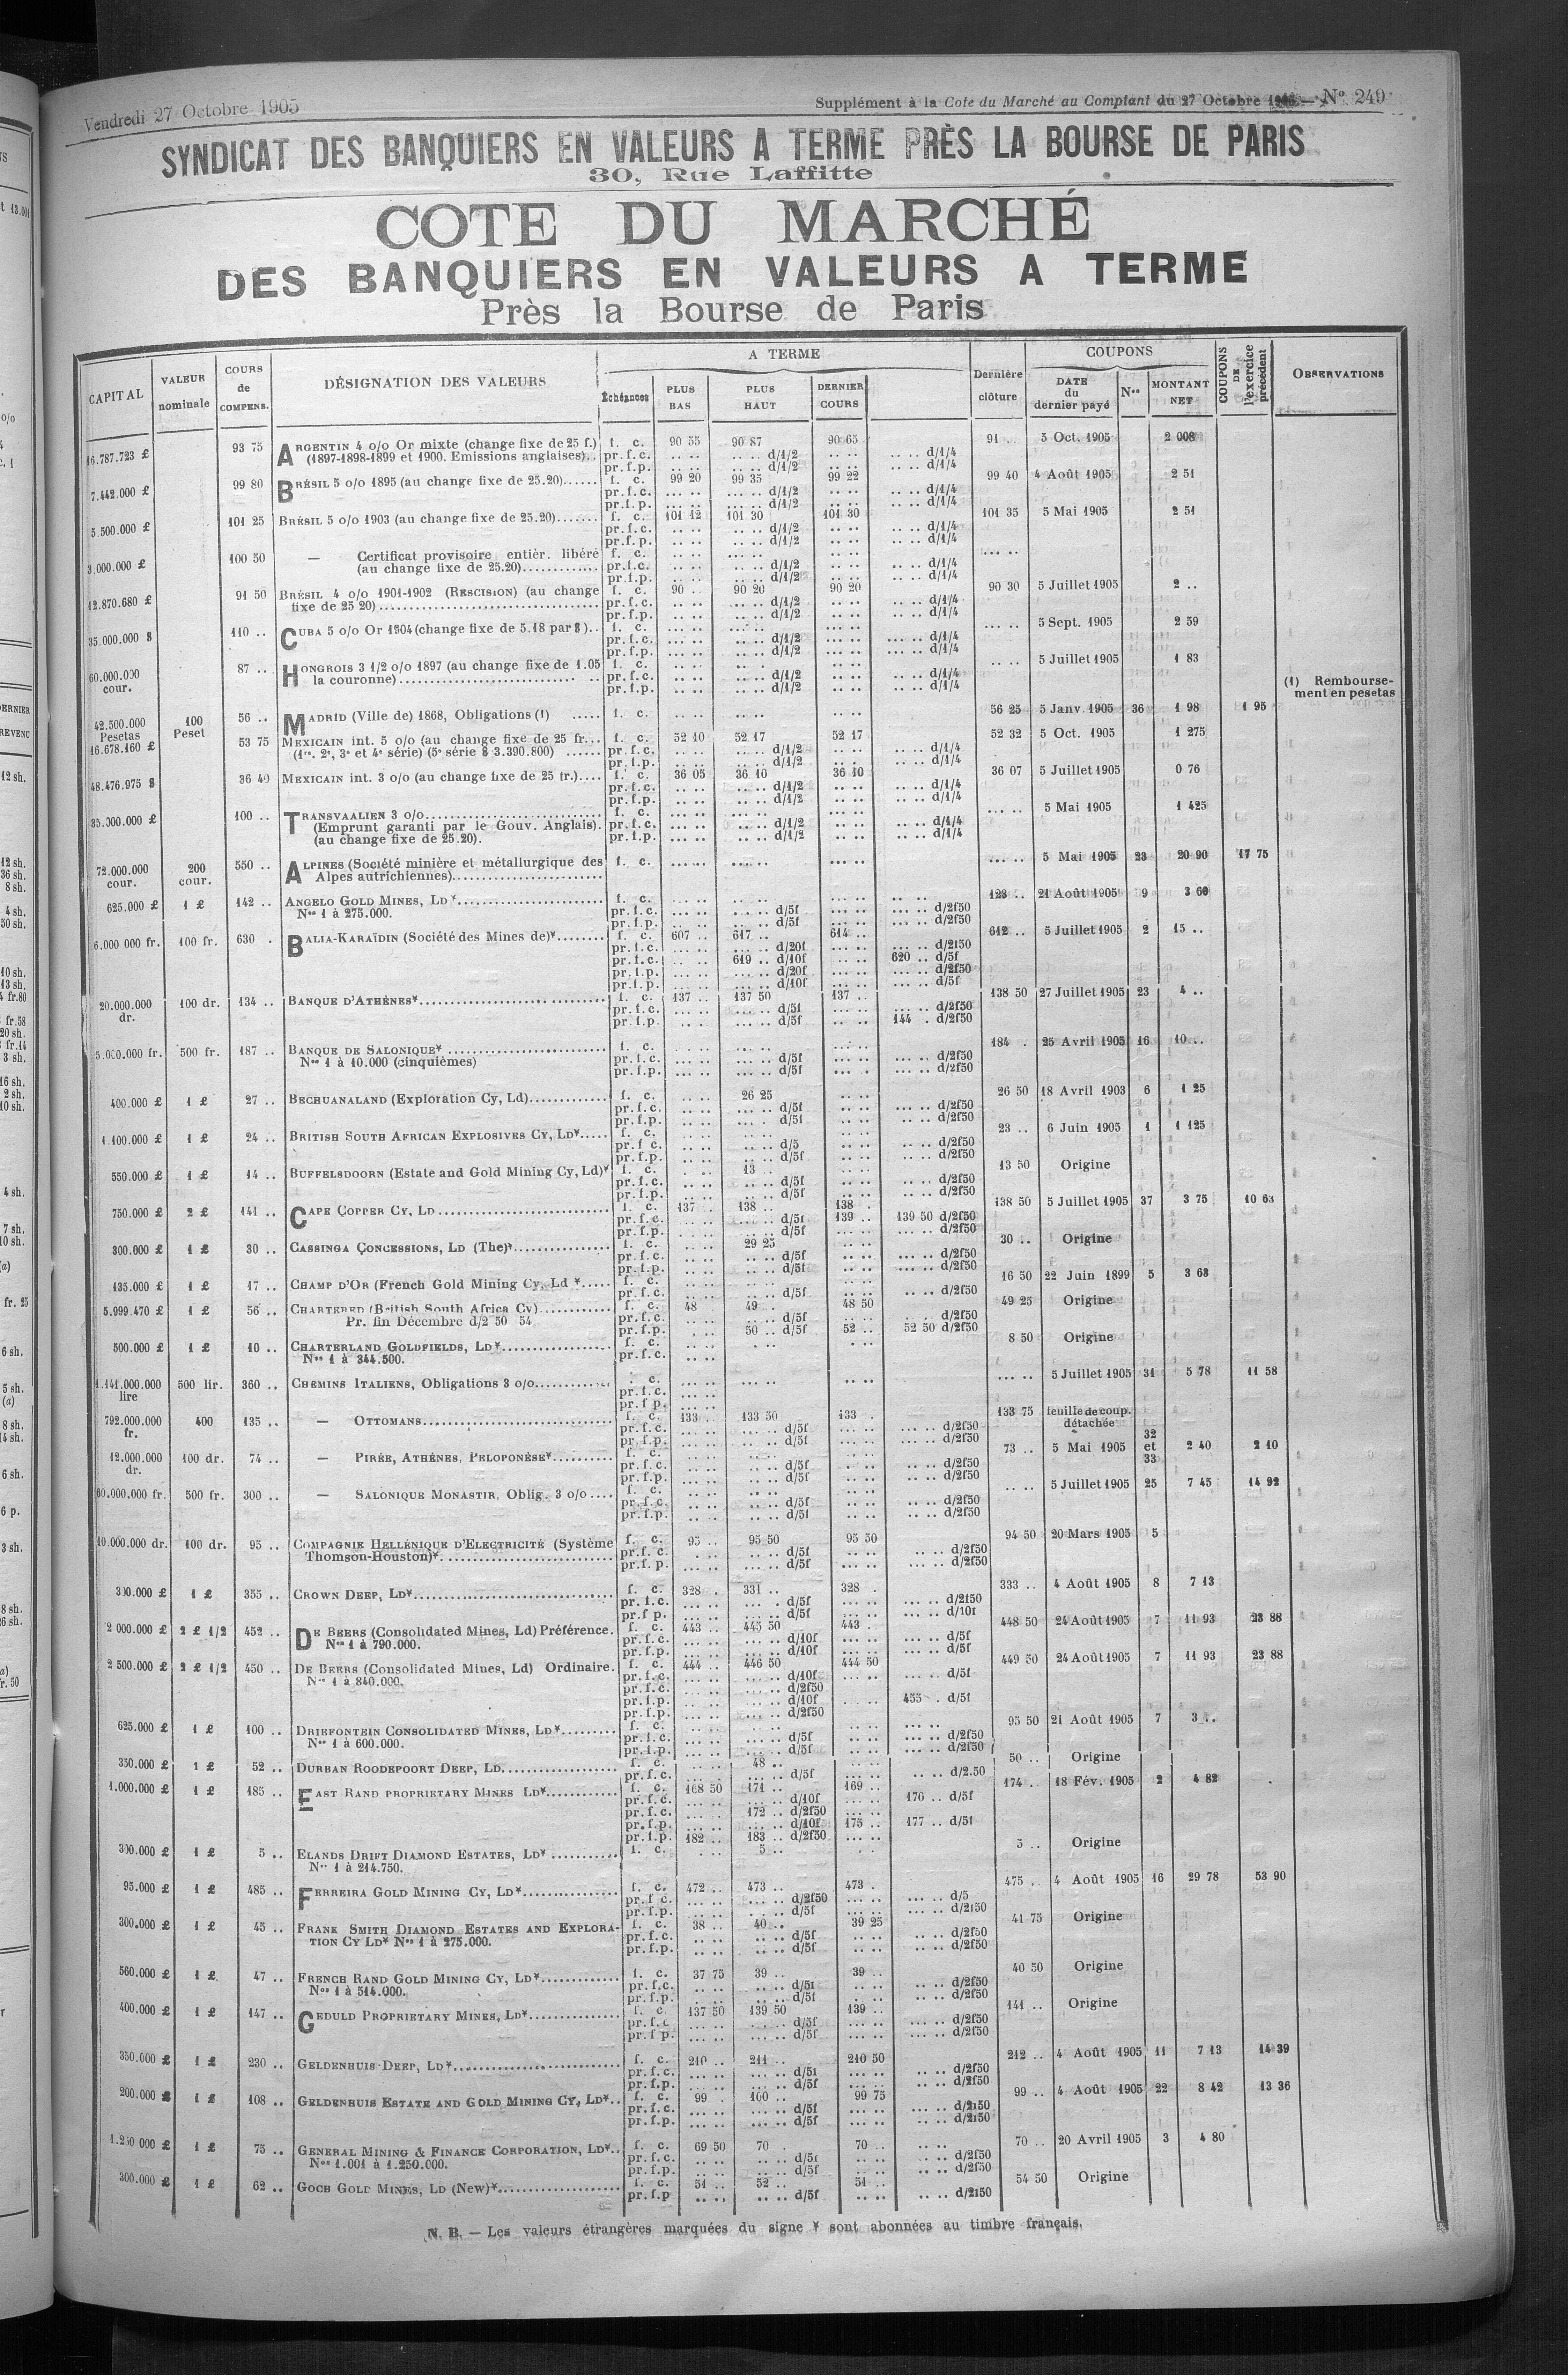 Vendredi 27 Octobre 1905
Supplément à la Cote du Marché au Comptant du 27 Octobre — N° 249
SYNDICAT DES BANQUIERS EN VALEURS A TERME PRÈS LA BOURSE DE PARIS
30, Rue Laffitte
COTE DU MARCHÉ
DES BANQUIERS EN VALEURS A TERME
Près la Bourse de Paris
CAPITAL VALEUR nominale COURS de COMPENS. DÉSIGNATION DES VALEURS A TERME Échéances PLUS BAS PLUS HAUT DERNIER COURS Dernière clôture COUPONS DATE du dernier payé Nos MONTANT NET COUPONS DE l'exercice précédent OBSERVATIONS
16.787.723 £ 93 75 ARGENTIN 4 o/o Or mixte (change fixe de 25 f.) f. c. 90 55 90 87 90 65 91 .. 5 Oct. 1905 2 008
(1897-1898-1899 et 1900. Emissions anglaises).. pr.f.c. .. .. .. .. d/1/2 .. .. .. .. d/1/4
pr.f.p. .. .. .. .. d/1/2 .. .. .. .. d/1/4
7.442.000 £ 99 80 BRÉSIL 5 o/o 1895 (au change fixe de 25.20)...... f. c. 99 20 99 35 99 22 99 40 4 Août 1905 2 51
pr.f.c. ... .. ... .. d/1/2 .. .. .. .. d/1/4
pr.f.p. ... .. ... .. d/1/2 .. .. .. .. d/1/4
5.500.000 £ 101 25 BRÉSIL 5 o/o 1903 (au change fixe de 25.20)....... f. c. 101 12 101 30 101 30 101 35 5 Mai 1905 2 51
pr.f.c. .. .. .. .. d/1/2 .. .. .. .. d/1/4
pr.f.p. .. .. .. .. d/1/2 .. .. .. .. d/1/4
3.000.000 £ 100 50 — Certificat provisoire entièr. libéré f. c. .. .. ... .. .. .. ... ..
(au change fixe de 25.20)............. pr.f.c. .. .. .. .. d/1/2 .. .. .. .. d/1/4
pr.f.p. .. .. .. .. d/1/2 .. .. .. .. d/1/4
12.870.680 £ 91 50 BRÉSIL 4 o/o 1901-1902 (RESCISION) (au change f. c. 90 .. 90 20 90 20 90 30 5 Juillet 1905 2 ..
fixe de 25 20)..................................... pr.f.c. .. .. .. .. d/1/2 .. .. .. .. d/1/4
pr.f.p. .. .. .. .. d/1/2 .. .. .. .. d/1/4
35.000.000 $ 110 .. CUBA 5 o/o Or 1904 (change fixe de 5.18 par $).. f. c. ... .. ... .. ... .. ... .. 5 Sept. 1905 2 59
pr.f.c. ... .. .. .. d/1/2 ... .. ... .. d/1/4
pr.f.p. ... .. .. .. d/1/2 ... .. ... .. d/1/4
60.000.000 cour. 87 .. HONGROIS 3 1/2 o/o 1897 (au change fixe de 1.05 f. c. .. .. .. .. .. .. .. .. 5 Juillet 1905 1 83
la couronne)............................. pr.f.c. .. .. .. .. d/1/2 .. .. .. .. d/1/4
pr.f.p. .. .. .. .. d/1/2 .. .. .. .. d/1/4
(1) Remboursement en pesetas
42.500.000 Pesetas 100 Peset 56 .. MADRID (Ville de) 1868, Obligations (1) ..... f. c. .. .. ... .. .. .. 56 25 5 Janv. 1905 36 1 98 1 95
16.678.160 £ 53 75 MEXICAIN int. 5 o/o (au change fixe de 25 fr... f. c. 52 10 52 17 52 17 52 32 5 Oct. 1905 1 275
(1re. 2e, 3e et 4e série) (5e série $ 3.390.800) ...... pr.f.c. .. .. .. .. d/1/2 .. .. .. .. d/1/4
pr.f.p. .. .. .. .. d/1/2 .. .. .. .. d/1/4
48.476.975 $ 36 40 MEXICAIN int. 3 o/o (au change fixe de 25 fr.).... f. c. 36 05 36 10 36 10 36 07 5 Juillet 1905 0 76
pr.f.c. .. .. .. .. d/1/2 .. .. .. .. d/1/4
pr.f.p. .. .. .. .. d/1/2 .. .. .. .. d/1/4
35.000.000 £ 100 .. TRANSVAALIEN 3 o/o............................ f. c. ... .. ... .. ... .. ... .. 5 Mai 1905 1 425
(Emprunt garanti par le Gouv. Anglais). pr.f.c. ... .. .. .. d/1/2 ... .. .. .. d/1/4
(au change fixe de 25.20). pr.f.p. ... .. .. .. d/1/2 ... .. .. .. d/1/4
72.000.000 cour. 200 cour. 550 .. ALPINES (Société minière et métallurgique des f. c. ... .. ... .. ... .. ... .. 5 Mai 1905 23 20 90 17 75
Alpes autrichiennes)........................
625.000 £ 1 £ 142 .. ANGELO GOLD MINES, LD ¥........................ f. c. 123 .. 21 Août 1905 9 3 60
Nos 1 à 275.000. pr.f.c. ... .. ... .. d/5f ... .. ... .. d/2f50
pr.f.p. ... .. ... .. d/5f ... .. ... .. d/2f50
6.000 000 fr. 100 fr. 630 . BALIA-KARAÏDIN (Société des Mines de)¥........ f. c. 607 .. 617 .. 614 .. 612 .. 5 Juillet 1905 2 15 ..
pr.f.c. ... .. ... .. d/20f ... .. ... .. d/2f50
pr.f.c. ... .. 619 .. d/10f ... .. 620 .. d/5f
pr.f.p. ... .. ... .. d/20f ... .. ... .. d/2f50
pr.f.p. ... .. ... .. d/10f ... .. ... .. d/5f
20.000.000 dr. 100 dr. 134 .. BANQUE D'ATHÈNES¥.............................. f. c. 137 .. 137 50 137 .. 138 50 27 Juillet 1905 23 4 ..
pr.f.c. .. .. ... .. d/5f .. .. ... .. d/2f50
pr.f.p. .. .. ... .. d/5f .. .. 144 . d/2f50
5.000.000 fr. 500 fr. 187 .. BANQUE DE SALONIQUE¥ ......................... f. c. 184 . 25 Avril 1905 16 10 ..
Nos 1 à 10.000 (cinquièmes) pr.f.c. ... .. ... .. d/5f ... .. ... .. d/2f50
pr.f.p. ... .. ... .. d/5f ... .. ... .. d/2f50
400.000 £ 1 £ 27 .. BECHUANALAND (Exploration Cy, Ld)............. f. c. .. .. 26 25 .. .. 26 50 18 Avril 1903 6 1 25
pr.f.c. .. .. ... .. d/5f .. .. ... .. d/2f50
pr.f.p. .. .. ... . d/5f .. .. ... .. d/2f50
1.100.000 £ 1 £ 24 .. BRITISH SOUTH AFRICAN EXPLOSIVES CY, LD¥..... f. c. .. .. .. .. .. .. 23 .. 6 Juin 1905 1 1 125
pr.f c. .. .. .. .. d/5 .. .. .. .. d/2f50
pr.f.p. .. .. .. .. d/5f .. .. .. .. d/2f50
550.000 £ 1 £ 14 .. BUFFELSDOORN (Estate and Gold Mining Cy, Ld)¥ f. c. .. .. 13 .. .. .. 13 50 Origine
pr.f.c. .. .. .. .. d/5f .. .. .. .. d/2f50
pr.f.p. .. .. .. .. d/5f .. .. .. .. d/2f50
750.000 £ 2 £ 141 .. CAPE COPPER CY, LD............................ f. c. 137 . 138 .. 138 . 138 50 5 Juillet 1905 37 3 75 10 63
pr.f.c. .. .. .. .. d/5f 139 .. 139 50 d/2f50
pr.f.p. .. .. .. .. d/5f .. .. ... .. d/2f50
300.000 £ 1 £ 30 .. CASSINGA CONCESSIONS, LD (The)¥............... f. c. .. .. 29 25 .. .. 30 .. Origine
pr.f.c. .. .. .. .. d/5f .. .. ... .. d/2f50
pr.f.p. .. .. .. .. d/5f .. .. ... .. d/2f50
135.000 £ 1 £ 17 .. CHAMP D'OR (French Gold Mining Cy, Ld ¥..... f. c. .. .. .. .. .. .. 16 50 22 Juin 1899 5 3 63
pr.f.c. .. .. .. .. d/5f .. .. .. .. d/2f50
5.999.470 £ 1 £ 56 .. CHARTERED (British South Africa Cy)........... f. c. 48 49 . 48 50 49 25 Origine
Pr. fin Décembre d/2 50 54 pr.f.c. .. .. .. .. d/5f .. .. .. .. d/2f50
pr.f.p. . .. 50 .. d/5f 52 .. 52 50 d/2f50
500.000 £ 1 £ 10 .. CHARTERLAND GOLDFIELDS, LD¥................. f. c. 8 50 Origine
Nos 1 à 344.500. pr.f.c. .. ..
1.141.000.000 lire 500 lir. 360 .. CHEMINS ITALIENS, Obligations 3 o/o........... f. c. ... .. ... .. .. .. ... .. 5 Juillet 1905 31 5 78 11 58
pr.f.c. ... ..
pr.f p. ... ..
792.000.000 fr. 400 135 .. — OTTOMANS............................. f. c. 133 .. 133 50 133 . 133 75 feuille de coup. détachée
pr.f.c. ... .. ... .. d/5f ... .. ... .. d/2f50
pr.f.p. ... .. .. .. d/5f ... .. ... .. d/2f50
12.000.000 dr. 100 dr. 74 .. — PIRÉE, ATHÈNES, PELOPONÈSE¥.......... f. c. 73 .. 5 Mai 1905 32 et 33 2 40 2 10
pr.f.c. .. .. .. .. d/5f .. .. .. .. d/2f50
pr.f.p. .. .. .. .. d/5f .. .. .. .. d/2f50
60.000.000 fr. 500 fr. 300 .. — SALONIQUE MONASTIR, Oblig. 3 o/o.... f. c. .. .. 5 Juillet 1905 25 7 45 14 92
pr.f.c. .. .. .. .. d/5f .. .. .. .. d/2f50
pr.f.p. .. .. .. .. d/5f .. .. .. .. d/2f50
10.000.000 dr. 100 dr. 95 .. COMPAGNIE HELLÉNIQUE D'ELECTRICITÉ (Système f. c. 95 .. 95 50 95 50 94 50 20 Mars 1905 5
Thomson-Houston)¥........................... pr.f.c. . .. .. .. d/5f .. .. .. .. d/2f50
pr.f.p. ... .. ... .. d/5f ... .. ... .. d/2f50
300.000 £ 1 £ 355 .. CROWN DEEP, LD¥............................... f. c. 328 . 331 .. 328 . 333 .. 4 Août 1905 8 7 13
pr.f.c. ... .. ... . d/5f ... .. ... .. d/2f50
pr.f p. ... .. ... .. d/5f ... .. ... .. d/10f
2 000.000 £ 2 £ 1/2 452 .. DE BEERS (Consolidated Mines, Ld) Préférence. f. c. 443 .. 445 50 443 . 448 50 24 Août 1905 7 11 93 23 88
Nos 1 à 790.000. pr.f.c. ... .. ... .. d/10f ... .. ... .. d/5f
pr.f.p. ... .. ... .. d/10f ... .. ... .. d/5f
2 500.000 £ 2 £ 1/2 450 .. DE BEERS (Consolidated Mines, Ld) Ordinaire. f. c. 444 .. 446 50 444 50 449 50 24 Août 1905 7 11 93 23 88
Nos 1 à 840.000. pr.f.c. ... .. ... .. d/10f ... .. ... .. d/5f
pr.f.c. ... .. ... .. d/2f50
pr.f.p. ... .. ... .. d/10f .. .. 455 . d/5f
pr.f.p. ... .. ... .. d/2f50
625.000 £ 1 £ 100 .. DRIEFONTEIN CONSOLIDATED MINES, LD¥......... f. c. 95 50 21 Août 1905 7 3 ..
Nos 1 à 600.000. pr.f.c. ... .. ... .. d/5f .. .. ... .. d/2f50
pr.f.p. ... .. ... .. d/5f .. .. ... .. d/2f50
350.000 £ 1 £ 52 .. DURBAN ROODEPOORT DEEP, LD.................. f. c. .. .. 48 .. .. .. 50 .. Origine
pr.f.c. ... .. ... .. d/5f .. .. .. .. d/2.50
1.000.000 £ 1 £ 185 .. EAST RAND PROPRIETARY MINES LD¥............ f. c. 168 50 171 .. 169 .. 174 .. 18 Fév. 1905 2 4 82
pr.f.c. ... .. ... .. d/10f ... .. 170 .. d/5f
pr.f.c. ... .. 172 .. d/2f50 ... ..
pr.f.p. ... .. ... .. d/10f 175 .. 177 .. d/5f
pr.f.p. 182 .. 183 .. d/2f50 ... ..
300.000 £ 1 £ 5 .. ELANDS DRIFT DIAMOND ESTATES, LD¥ ........... f. c. . .. 5 .. . . 5 .. Origine
Nos 1 à 214.750.
95.000 £ 1 £ 485 .. FERREIRA GOLD MINING CY, LD¥................ f. c. 472 .. 473 .. 473 . 475 .. 4 Août 1905 16 29 78 53 90
pr.f c. ... .. ... .. d/2f50 ... .. ... .. d/5
pr.f.p. ... .. ... .. d/5f ... .. ... .. d/2f50
300.000 £ 1 £ 45 .. FRANK SMITH DIAMOND ESTATES AND EXPLORA- f. c. 38 .. 40 .. 39 25 41 75 Origine
TION CY LD¥ Nos 1 à 275.000. pr.f.c. .. .. .. .. d/5f .. .. .. .. d/2f50
pr.f.p. .. .. .. .. d/5f .. .. .. .. d/2f50
560.000 £ 1 £ 47 .. FRENCH RAND GOLD MINING CY, LD¥............ f. c. 37 75 39 .. 39 .. 40 50 Origine
Nos 1 à 514.000. pr.f.c. .. .. .. .. d/5f .. .. .. .. d/2f50
pr.f.p. .. .. .. .. d/5f .. .. .. .. d/2f50
400.000 £ 1 £ 147 .. GEDULD PROPRIETARY MINES, LD¥............... f. c. 137 50 139 50 139 .. 141 .. Origine
pr.f.c ... .. ... .. d/5f ... .. ... .. d/2f50
pr.f p. ... .. ... .. d/5f ... .. ... .. d/2f50
350.000 £ 1 £ 230 .. GELDENHUIS DEEP, LD¥.......................... f. c. 210 .. 211 .. 210 50 212 .. 4 Août 1905 11 7 13 14 39
pr.f.c. ... .. ... .. d/5f .. .. .. .. d/2f50
pr.f.p. ... .. ... .. d/5f .. .. .. .. d/2f50
200.000 £ 1 £ 108 .. GELDENHUIS ESTATE AND GOLD MINING CY, LD¥.. f. c. 99 . 100 .. 99 75 99 .. 4 Août 1905 22 8 42 13 36
pr.f.c. ... .. ... .. d/5f ... .. ... .. d/2f50
pr.f.p. ... .. ... .. d/5f ... .. ... .. d/2f50
1.250 000 £ 1 £ 75 .. GENERAL MINING & FINANCE CORPORATION, LD¥.. f. c. 69 50 70 . 70 .. .. .. 70 .. 20 Avril 1905 3 4 80
Nos 1.001 à 1.250.000. pr.f.c. .. .. .. .. d/5f .. .. .. .. d/2f50
pr.f.p. .. .. .. .. d/5f .. .. .. .. d/2f50
300.000 £ 1 £ 62 .. GOCH GOLD MINES, LD (New)¥.................... f. c. 51 .. 52 .. 51 .. 54 50 Origine
pr.f.p .. .. .. .. d/5f .. .. .. .. d/2f50
N. B. — Les valeurs étrangères marquées du signe ¥ sont abonnées au timbre français.